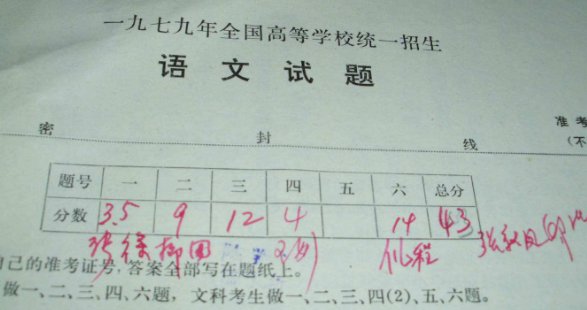 一九七九年全国高等学校统一招生
语文试题
准考
密 封 线 (不
题号 一 二 三 四 五 六 总分
分数 3.5 9 12 4 14 43
自己的准考证号,答案全部写在题纸上。
做一、二、三、四、六题,文科考生做一、二、三、四(2)、五、六题。